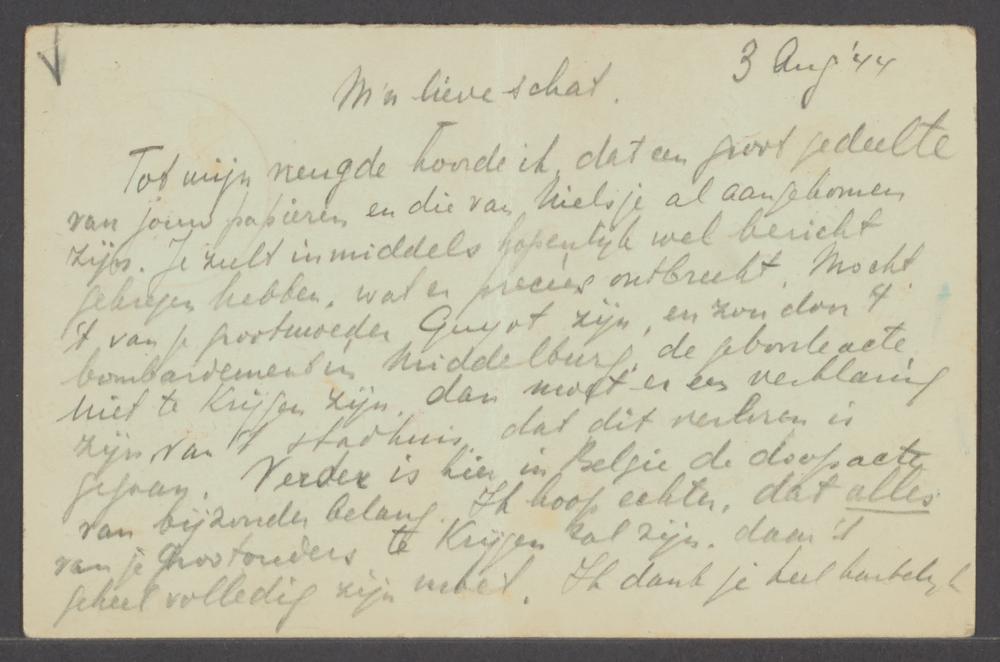 3 Aug '44
M'n lieve schat.
Tot mijn vreugde hoorde ik, dat een groot gedeelte
van jouw papieren en die van Nielsje al aangekomen
zijn. Je zult inmiddels hopenlijk wel bericht
gekregen hebben, wat er precies ontbreekt. Mocht
't van je grootmoeder Guyot zijn, en zou door 't
bombardement in Middelburg, de geboorteacte,
niet te krijgen zijn, dan moet er een verklaring
zijn van 't stadhuis, dat dit verloren is
gegaan. Verder is hier in Belgie de doopacte
van bijzonder belang. Ik hoop echter, dat alles
van je Grootouders te krijgen zal zijn, daar 't
geheel volledig zijn moet. Ik dank je heel hartelijk